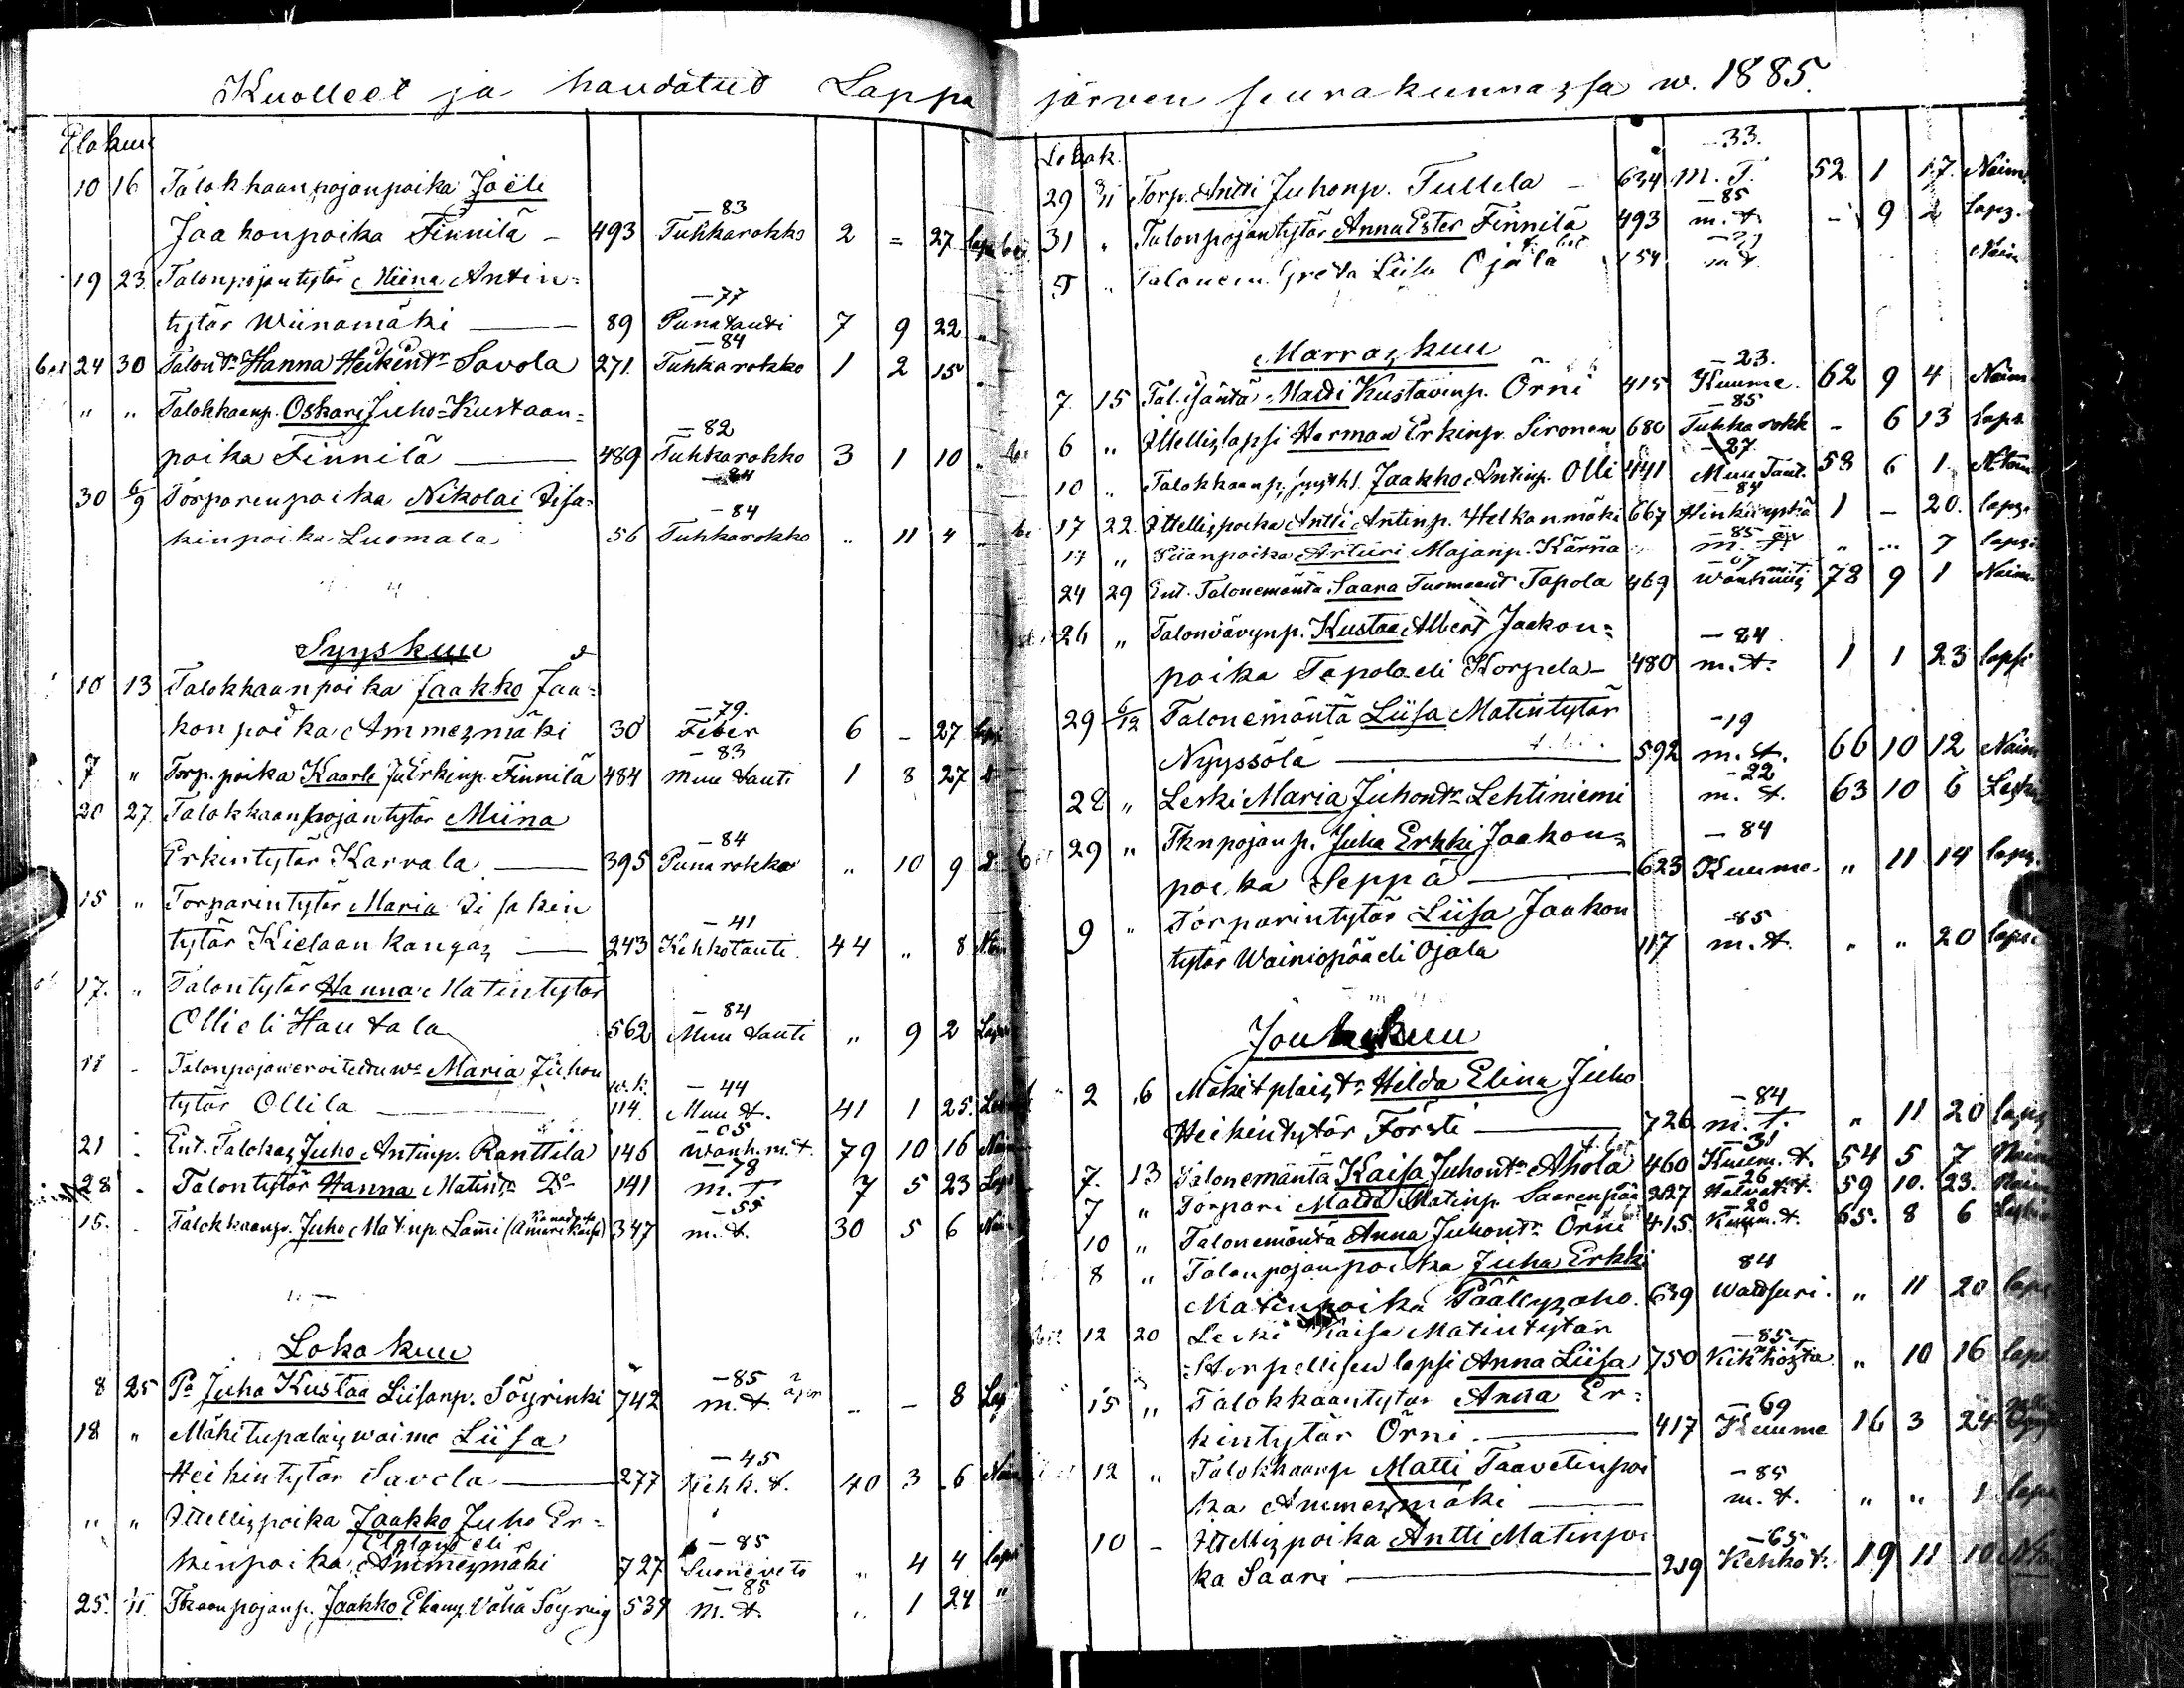 Kuolleet ja haudatut Lappa
Elokuu
10 16 Talokkaanpojanpoika Joeli
— 83
Jaakonpoika Finnilä — 493 Tuhkarokko 2 = 27 lapsi
19 23 Talonpojantytär Miina Antin=
— 77
tytär Wiinamäki — 89 Punatauti 7 9 22 "
— 84
24 30 Talontr Hanna Heikintr Savola 271 Tuhkarokko 1 2 15
" " Talokkaanp. Oskari Juho=Kustaan=
— 82
poika Finnilä — 489 Tuhkarokko 3 1 10 "
30 6/9 Torparinpoika Nikolai Iisa=
— 84
kinpoika Luomala 56 Tuhkarokko " 11 4 "
Syyskuu
10 13 Talokkaanpoika Jaakko Jaa=
— 79.
konpoika Ammesmäki 30 Feber 6 — 27 lapsi
— 83
7 " Torp. poika Kaarle Ju Erkinp. Finnilä 484 muu tauti 1 8 27
20 27 Talokkaanpojantytär Miina
— 84
Erkintytär Karvala — 395 Punarokko " 10 9
15 " Torparintytär Maria Iisakin
— 41
tytär Kielaankangas — 243 Kehkotauti 44 " 8
17. " Talontytär Hanna Matintytär
— 84
Olli eli Hautala 562 Muu tauti " 9 2
11 - Talonpojan eroitettu wo Maria Juhon
— 44
tytär Ollila — 114. Muu t. 41 1 25.
— 05
21 Ent. Talokas Juho Antinp. Ranttila 146 wanh. m. t. 79 10 16
— 78
28 - Talontytär Hanna Matintr Do 141 m. T 7 5 23
— 55
15. Talokkaanp. Juho Matinp. Lammi 347 m. t. 30 5 6
Lokakuu
— 85
8 25 Pa Juha Kustaa Liisanp. Söyrinki 742 m. t. " — 8
18 " Mäkitupalais waimo Liisa
— 45
Heikintytär Savola — 277 Kehk. t. 40 3 6
" " Itellispoika Jaakko Juho Er=
— 85
kinpoika Ammesmäki 727 Suoneveto " 4 4 lapsi
— 85
25. Tkaanpojanp. Jaakko Vähä Söyring 534 m. t. " 1 24 "
järven seurakunnassa w. 1885.
Lokak.
— 33.
29 3/11 Torp. Antti Juhonp. Tullela — 634 M. T. 52 1 17. Naim.
— 85
31 " Talonpojantytär Anna Ester Finnilä 493 m. t. - 9 2 laps.
5 " Talonem. Greta Liisa Ojala 154 m t. Naim
Marraskuu
— 23.
7. 15 Tal. isäntä Matti Kustavinp. Örni 415 Kuume. 62 9 4 Naim
— 85
6 " Itellislapsi Herman Erkinp. Sironen 680 Tuhkarokk - 6 13 laps.
— 27
10 " Talokkaanp. Jaakko Antinp. Olli 441 Muu Taut. 58 6 1
— 84
17 22 Itellispoika Antti Antinp. Helkanmäki 667 Hinkuyskä 1 — 20. laps.
— 85
17 " Piianpoika Artturi Majanp. Kärnä m. t. " " 7 lapsi
24 29 Ent. Talonemäntä Saara Tuomaantr Tapola 469 wanhuus 78 9 1 Naim.
26 " Talonvävynp. Kustaa Albert Jaakon=
— 84
poika Tapola eli Korpela — 480 m. t. 1 1 23 lapsi
29 6/12 Talonemäntä Liisa Matintytär
— 19
Nyyssölä — 592 m. t. 66 10 12 Naim
— 22
28 " Leski Maria Juhontr Lehtiniemi m. t. 63 10 6 Leski
29 " Tknpojanp. Juha Erkki Jaakon=
— 84
poika Seppä — 623 Kuume. " 11 14 laps.
9 " Torparintytär Liisa Jaakon
— 85
tytär Wainiopää eli Ojala 117 m. t. " " 20 lapsi
Joulukuu
2 6 Mäkitplaistr Hilda Elina Juho
— 84
Heikintytär Försti — 726 m. T. " 11 20 laps
— 31
7. 13 Talonemäntä Kaisa Juhontr Ahola 460 Kuum. t. 54 5 7 Naim
— 26
7 " Torpari Matti Matinp. Saarenpää 227 Halvat. t. 59 10. 23. Naim
— 20
10 " Talonemäntä Anna Juhontr Örni 415. Kuum. t. 65. 8 6
8 " Talonpojanpoika Juha Erkki
84
Matinpoika Päällysaho. 639 Watsuri. " 11 20 laps
12 20 Leski Kaisa Matintytär
— 85
Storpellisen lapsi Anna Liisa 750 " 10 16 laps
15 " Talokkaantytär Anna Er=
— 69
kintytär Örni. — 417 Kuume 16 3 24
12 " Talokkaanp Matti Taavetinpoi
— 85
ka Ammesmäki — m. t. " " 1 laps
10 - Itellispoika Antti Matinpoi
— 65
ka Saari — 219 Kehkot. 19 11 10